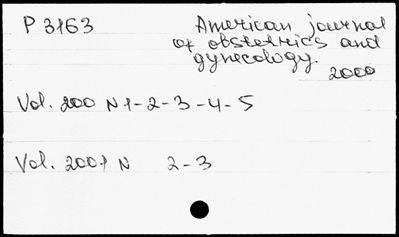 P 3163 American journal
of obstetrics and
gynecology.
2000
Vol. 200 N 1-2-3-4-5
Vol. 2001 N 2-3